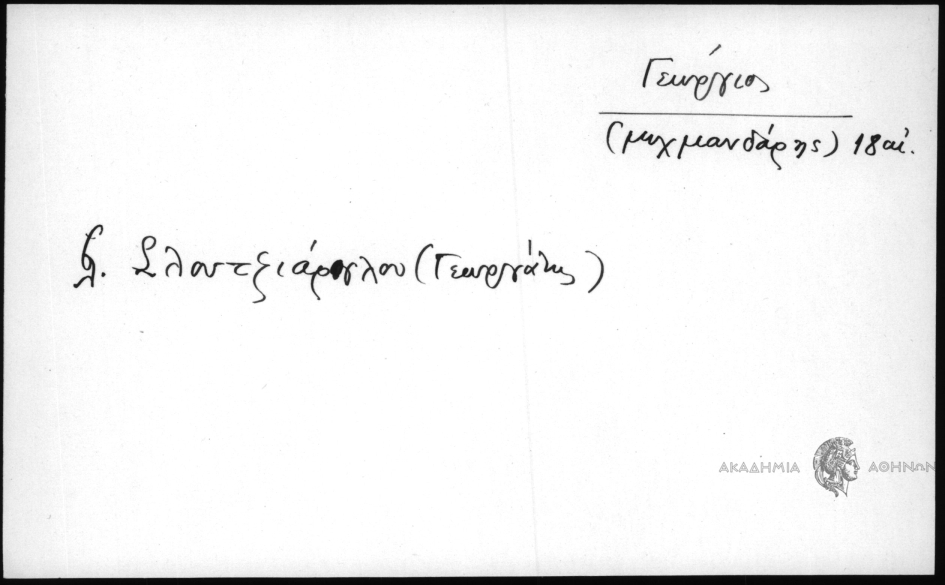 Γεώργιος
(μιχμανδάρης) 18 αἰ.
βλ. Σλουτζιάρογλου (Γεωργάκης)
ΑΚΑΔΗΜΙΑ ΑΘΗΝΩΝ